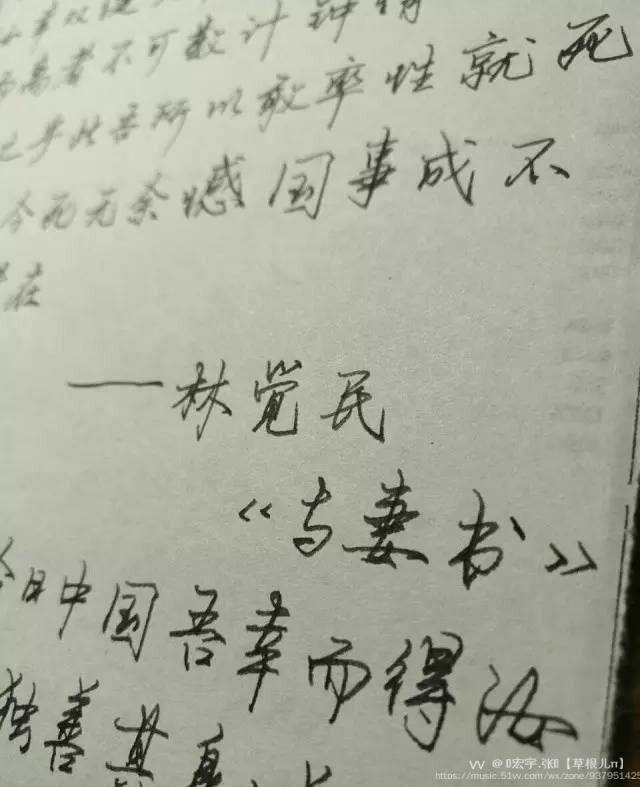 离者不可数计钟情
之乎此吾所以敢率性就死
今死无余憾国事成不
在
——林觉民
《与妻书》
今日中国吾幸而得汝
独善其身
VV @ 宏宇.张【草根儿π】
https://music.51vv.com/wx/zone/937951425